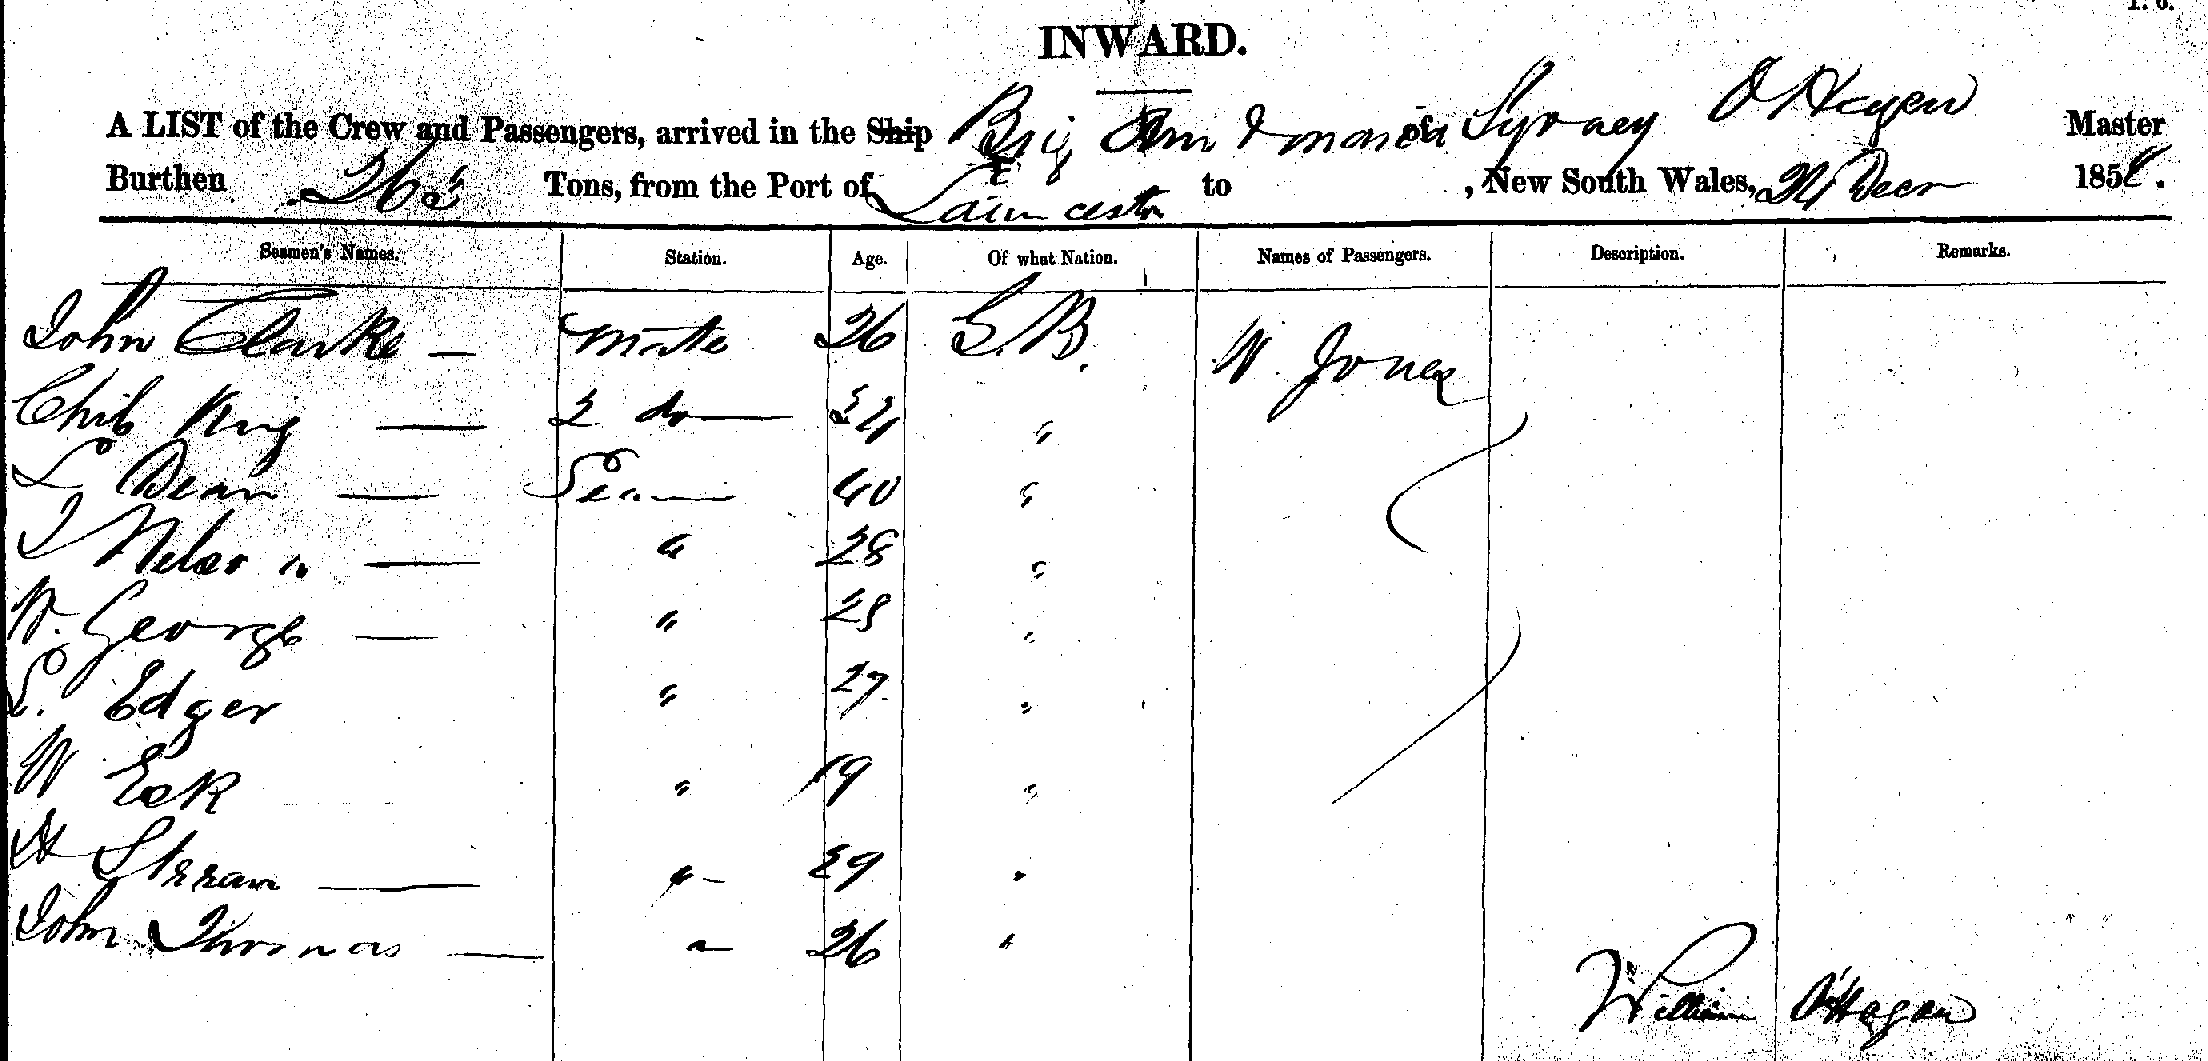 INWARD.
A LIST of the Crew and Passengers, arrived in the Ship Brig Ann & Maria of Sydney O'Hagan Master
Burthen Tons, from the Port of Launceston to , New South Wales, 24 Decr 185
Seamen's Names. Station. Age. Of what Nation. Names of Passengers. Description. Remarks.
John Clarke — Mate 26 G.B. W. Jones
King — 2 do — 24 "
Dean — Seaman 40 "
Nelson — " 28 "
W. George — " "
S. Edger " 27 "
W " 19 "
" 29 "
John Thomas — " 26 "
William O'Hagan